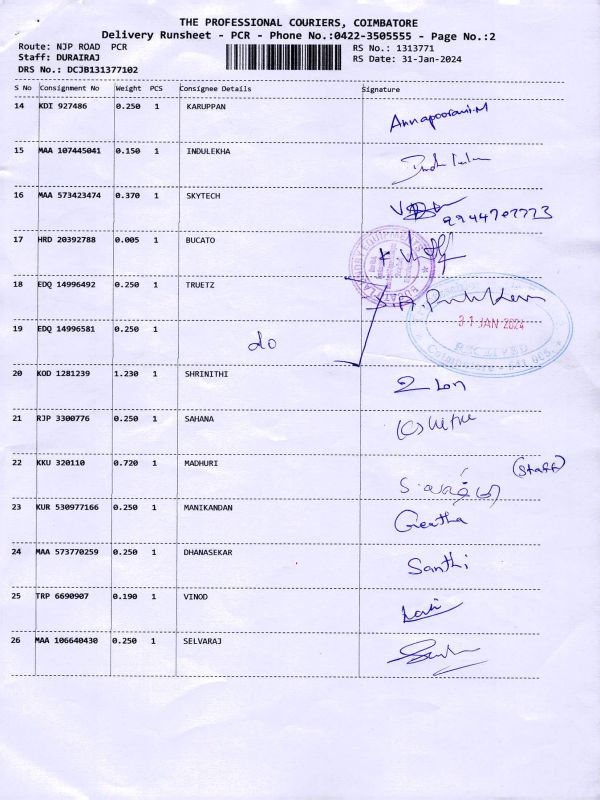 THE PROFESSIONAL COURIERS, COIMBATORE
Delivery Runsheet - PCR - Phone No.:0422-3505555 - Page No.:2
Route: NJP ROAD PCR RS No.: 1313771
Staff: DURAIRAJ RS Date: 31-Jan-2024
DRS No.: DCJB131377102
S No Consignment No Weight PCS Consignee Details Signature
14 KDI 927486 0.250 1 KARUPPAN Annapoorani.M
15 MAA 107445041 0.150 1 INDULEKHA
16 MAA 573423474 0.370 1 SKYTECH 9944707773
17 HRD 20392788 0.005 1 BUCATO
18 EDQ 14996492 0.250 1 TRUETZ
31 JAN 2024
19 EDQ 14996581 0.250 1 do
RECEIVED
20 KOD 1281239 1.230 1 SHRINITHI
21 RJP 3300776 0.250 1 SAHANA
22 KKU 320110 0.720 1 MADHURI (Staff)
23 KUR 530977166 0.250 1 MANIKANDAN Geetha
24 MAA 573770259 0.250 1 DHANASEKAR Santhi
25 TRP 6690907 0.190 1 VINOD
26 MAA 106640430 0.250 1 SELVARAJ